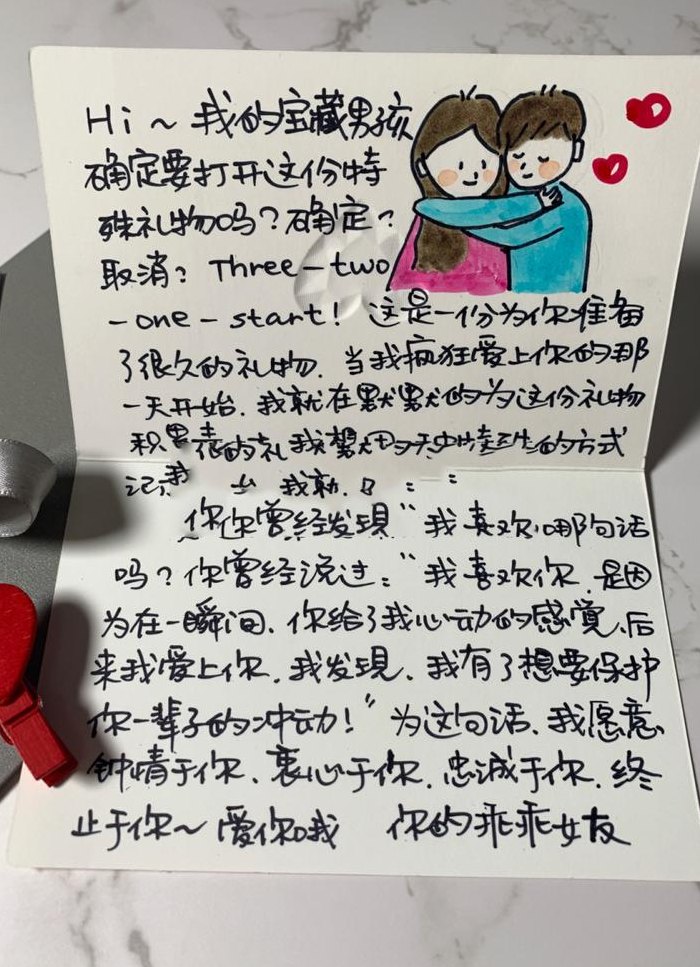 Hi~ 我的宝藏男孩
确定要打开这份特
殊礼物吗?确定?
取消? Three-two
-one-start! 这是一份为你准备
了很久的礼物. 当我疯狂爱上你的那
一天开始. 我就在默默的为这份礼物
积累 的礼 我 的方式
记 我 我
你你曾经发現“我喜欢 哪句话
吗?你曾经说过:“我喜欢你.是因
为在一瞬间.你给了我心动的感觉.后
来我爱上你.我发現.我有了想要保护
你一辈子的冲动!”为这句话.我愿意
钟情于你.衷心于你.忠诚于你.终
止于你~爱你哦 你的乖乖女友